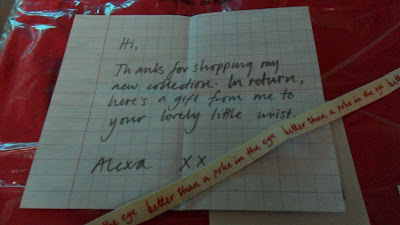 Hi,
Thanks for shopping my
new collection. In return,
here's a gift from me to
your lovely little wrist.
Alexa XX
the eye better than a poke in the eye better than a poke in the eye better